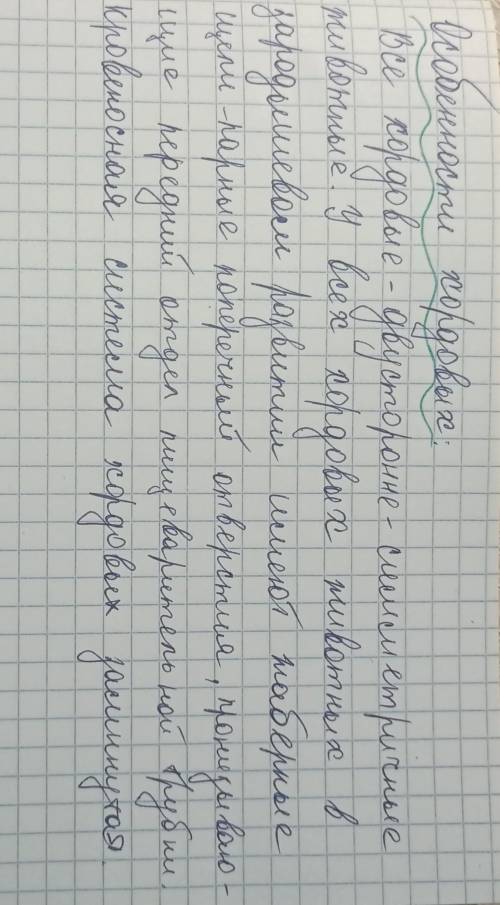 Особенности хордовых:
Все хордовые - двусторонне - симметричные
животные. У всех хордовых животных в
зародышевом развитии имеют жаберные
щели - парные поперечный отверстия, пронизываю-
щие передний отдел пищеварительной трубки.
Кровеносная система хордовых замкнутая.